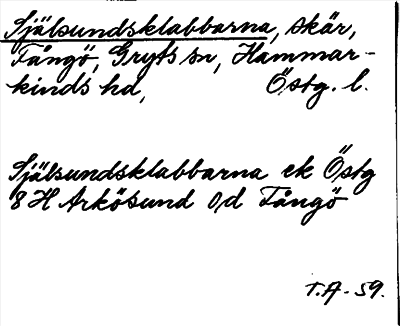 Själsundsklabbarna, skär,
Fångö, Gryts sn, Hammar-
kinds hd, Östg. l.
Själsundsklabbarna ek Östg
8 H Arkösund Od Fångö
T.A. 59.